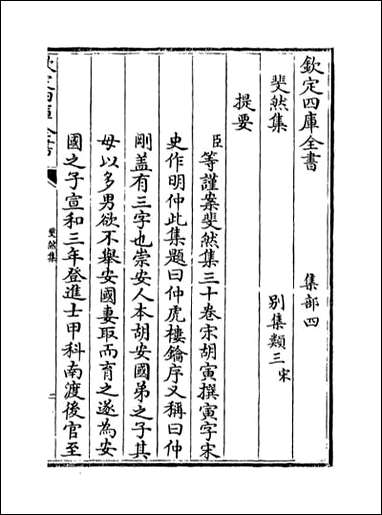 欽定四庫全書
集部四
斐然集
別集類三宋
提要
臣等謹案斐然集三十卷宋胡寅撰寅字宋
史作明仲此集題曰仲虎樓鑰序又稱曰仲
剛盖有三字也崇安人本胡安國弟之子其
母以多男欲不舉安國妻取而育之遂為安
國之子宣和三年登進士甲科南渡後官至
欽定四庫全書
斐然集